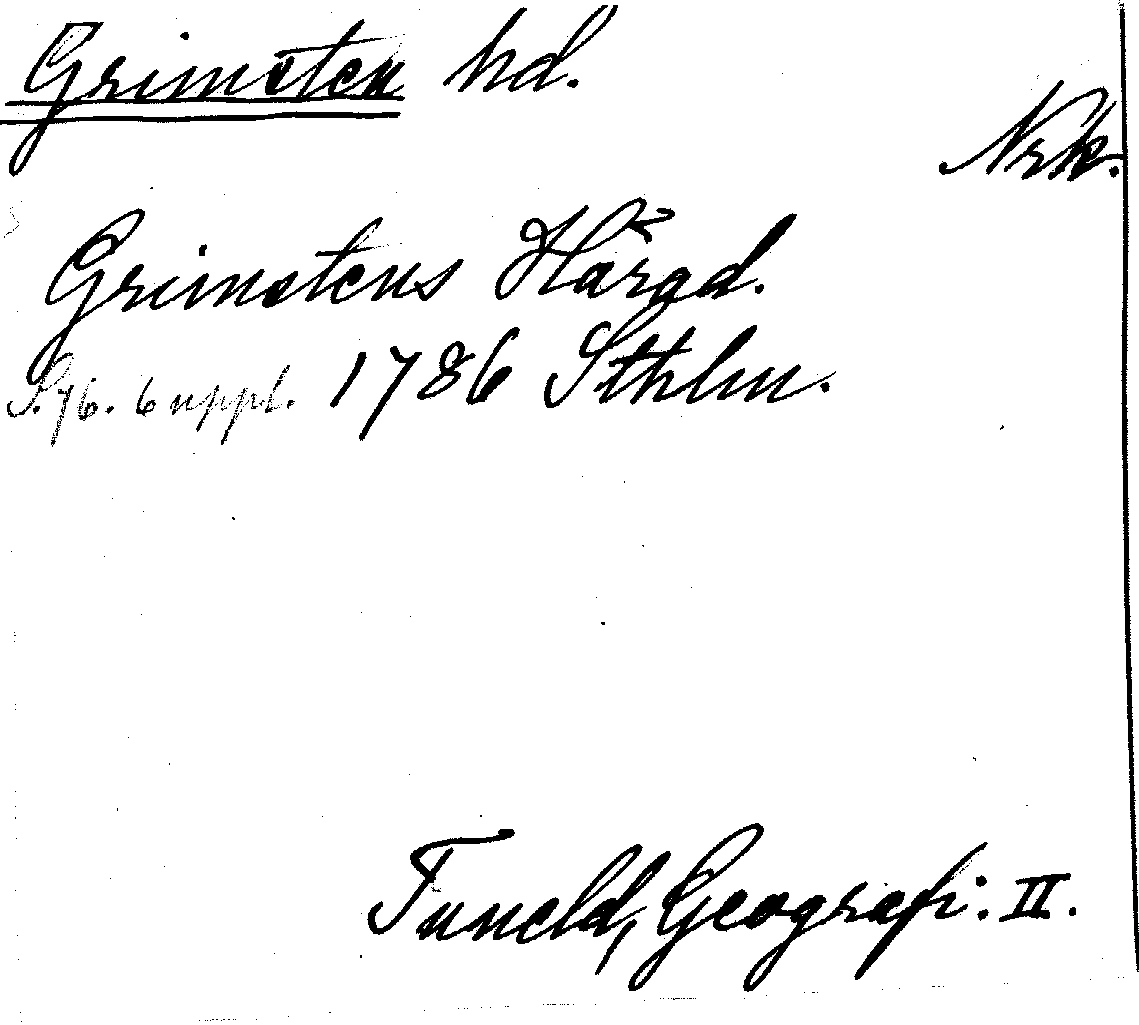 Grimsten hd.
Nrk.
Grimstens Härad.
S. 76. 6 uppl. 1786 Sthlm.
Tuneld, Geografi. II.